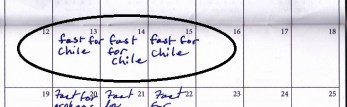 12 13 14 15 16 17 18
fast for fast fast for
Chile for Chile
Chile
19 20 21 22 23 24 25
Fast for Fast Fast
for for